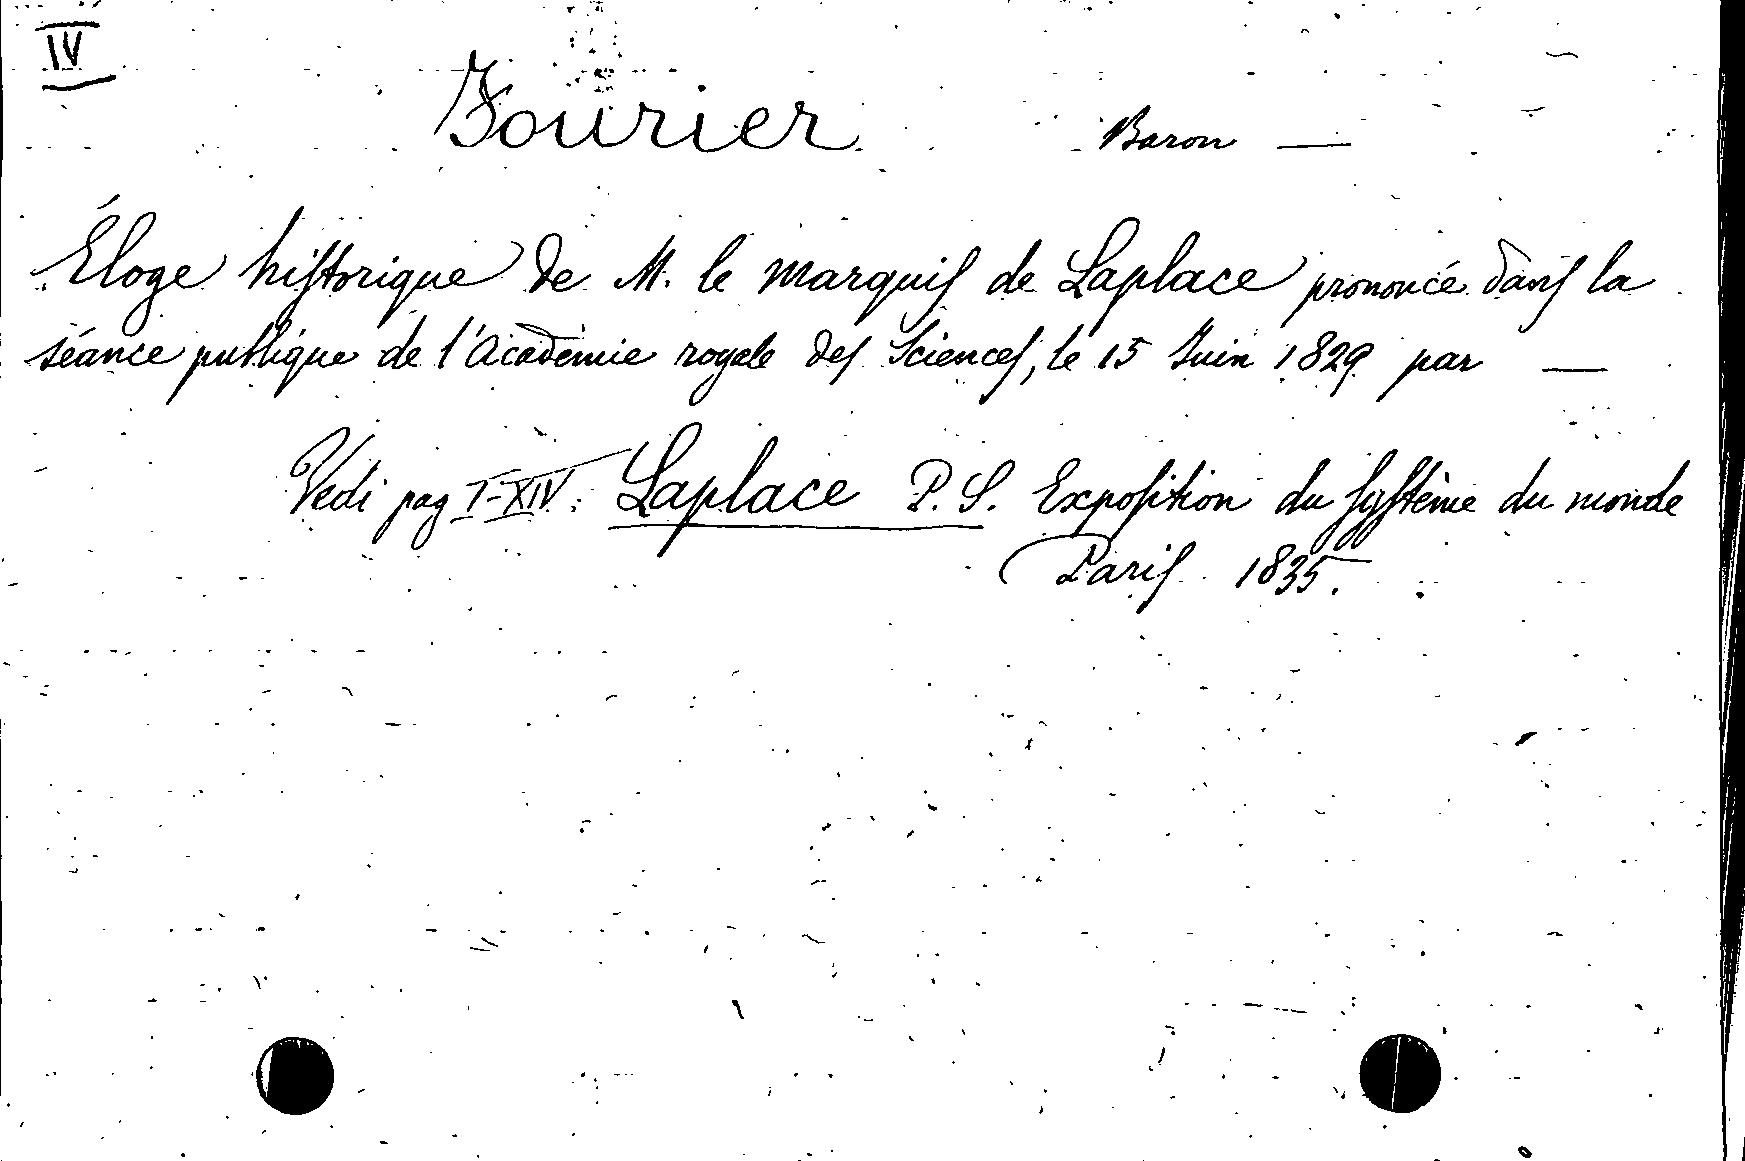 IV
Fourier Baron —
Éloge historique de M. le marquis de Laplace prononcé dans la
séance publique de l'Académie royale des Sciences, le 15 Juin 1829 par —
Vedi pag I-XIV: Laplace P. S. Exposition du système du monde
Paris 1835.